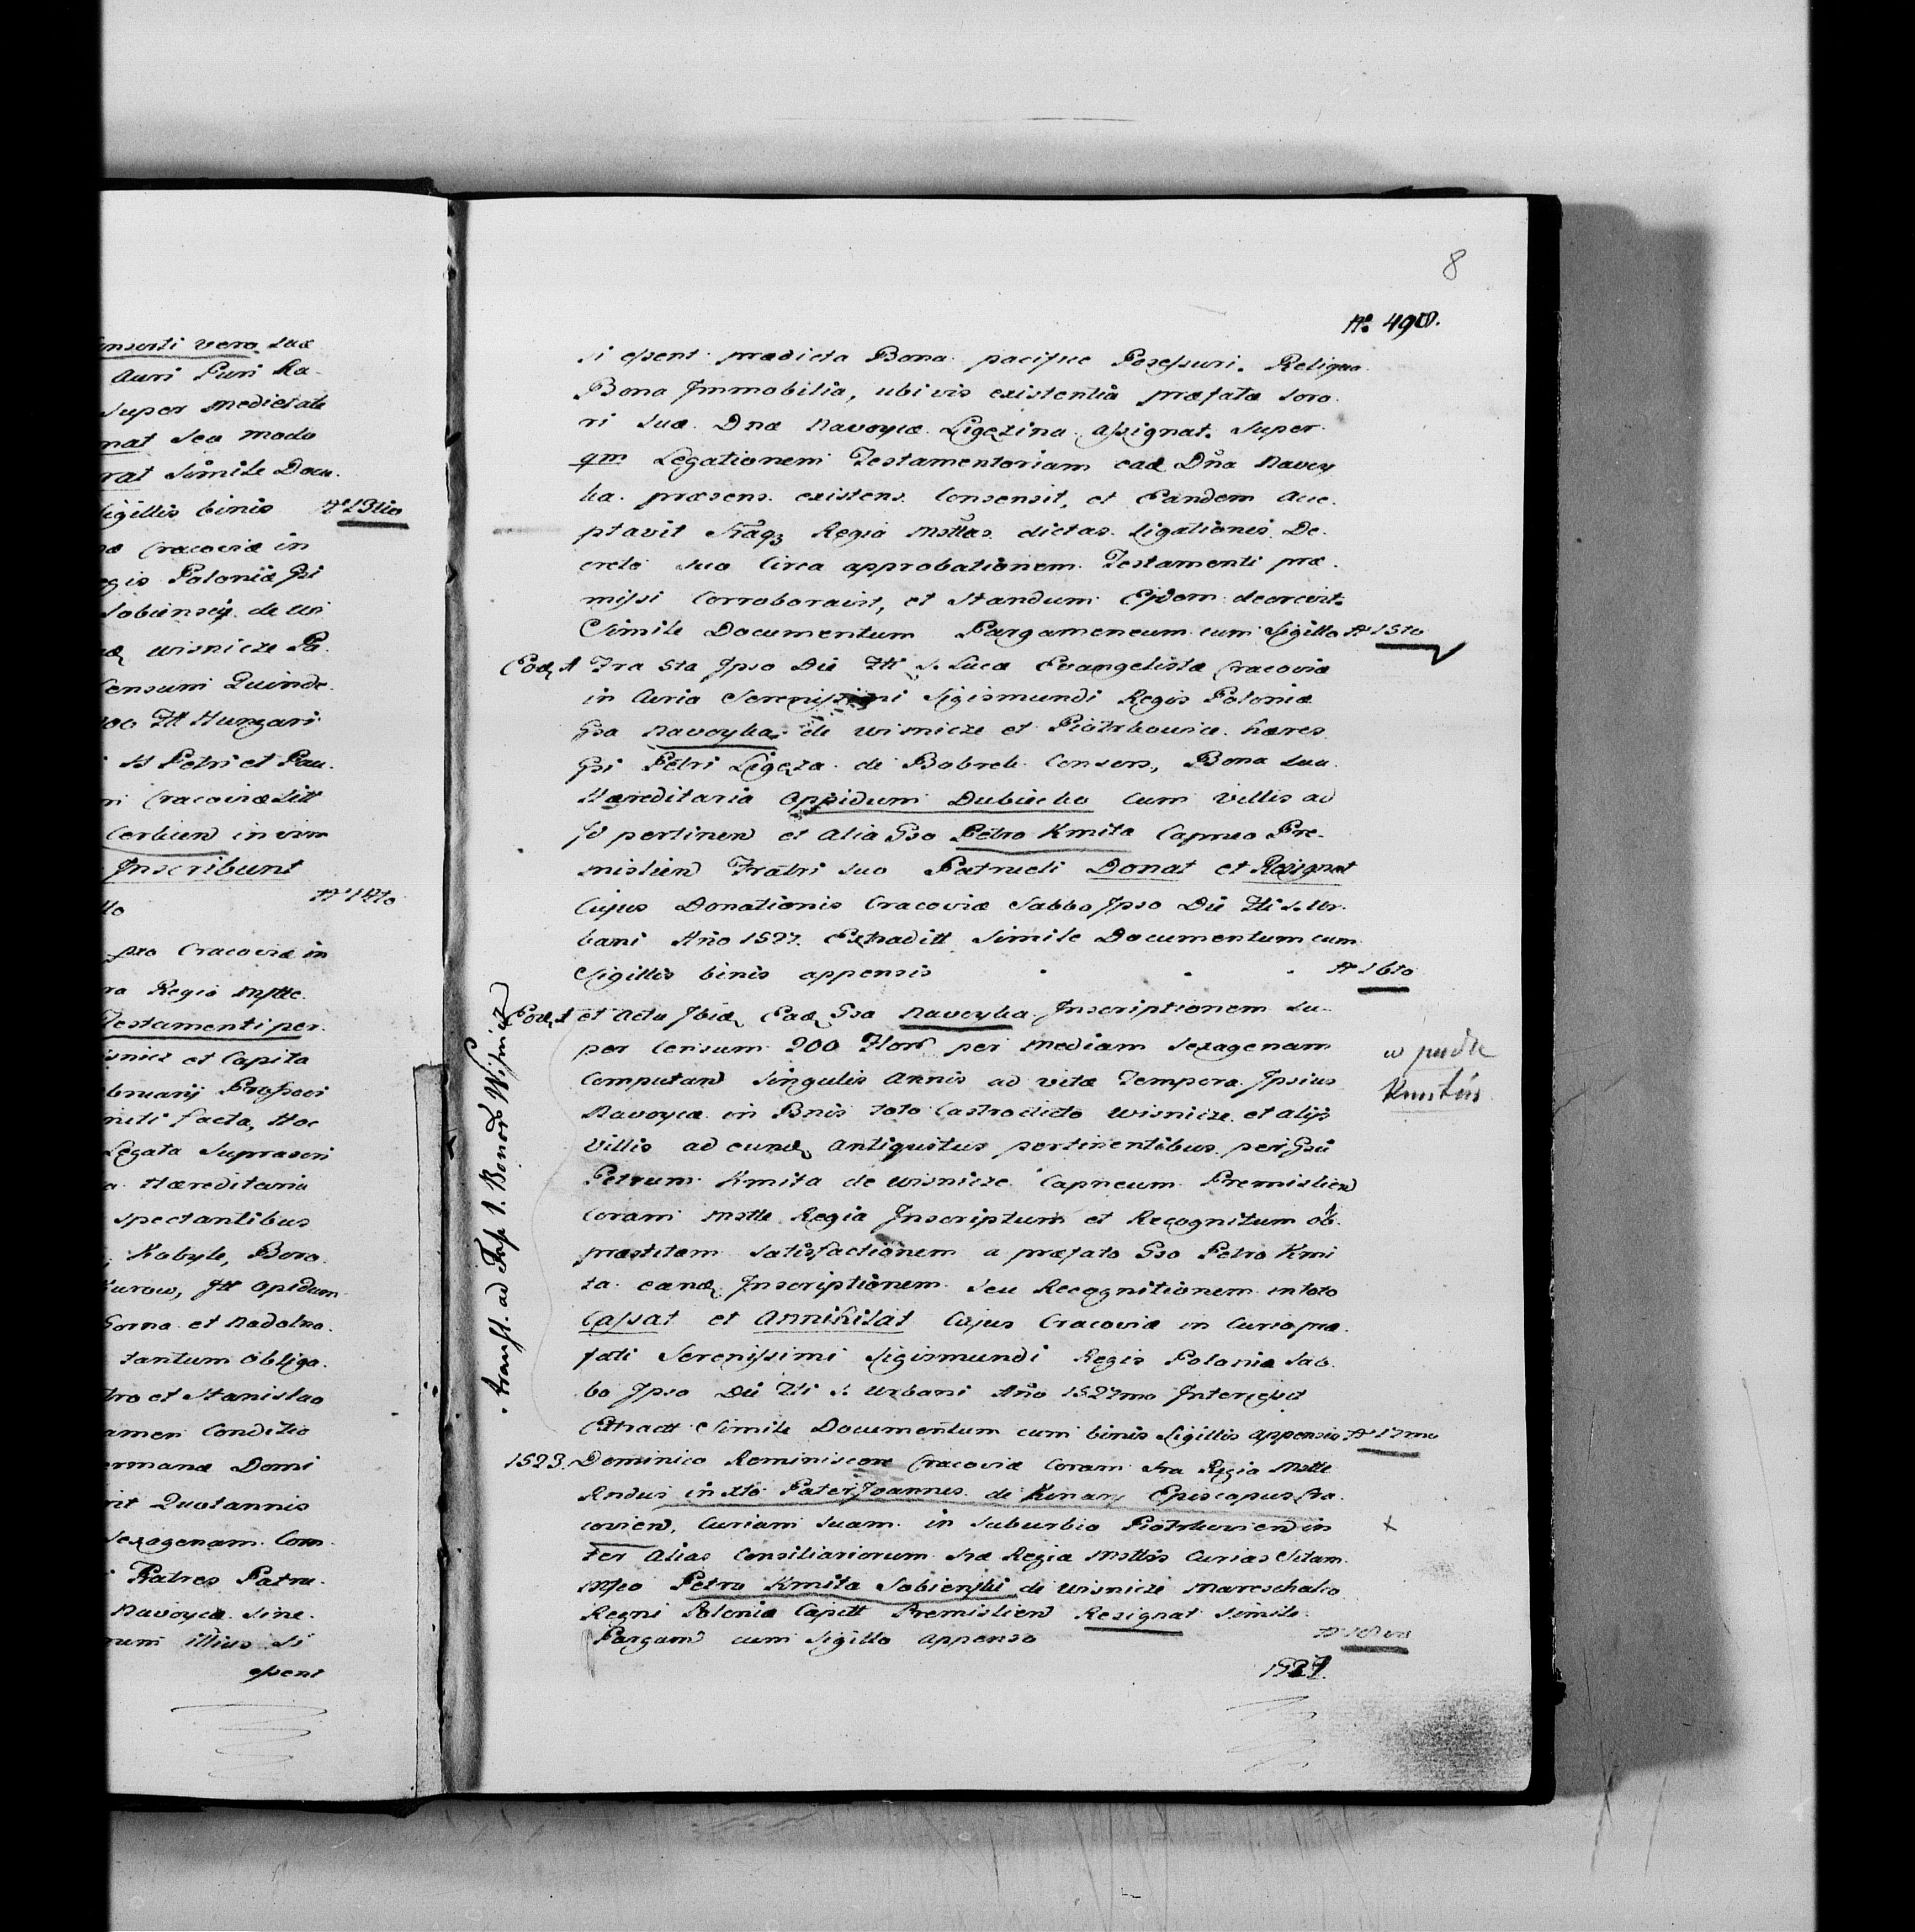 onsorti vero suæ
Auri Puri Ra-
super Medietate
nat seu modo
rat Simile Docu.
Sigillis binis No 13tio
Cracoviæ in
egis Poloniæ Gsi
Sobiensÿ de Wi
Wisnicze Pa.
Censum Quinde.
Hungari
SS Petri et Pau.
Cracoviæ Sitt
in vim
Inscribunt
No 14to
Cracoviæ in
ra Regia Mtte.
Testamenti per.
isnicz et Capita
bruarÿ
facta, Hoc
Legata Suprascri
a Hæreditaria
spectantibus
Kobyle, Boro.
Kurow, Itt Opidum
Gorna et Nadolna.
tantum Obliga.
tro et Stanislao
amen Conditio
ermanæ Domi
rit Quotannis
Sexagenam Com
Fratres Patru.
Navoyca sine.
rum illius Si
essent
8
No. 490.
si essent prædicta Bona pacifice Posessuri. Reliqua
Bona Immobilia, ubivis existentia præfatæ Soro.
ri Suæ Dnæ Navoyca Ligezina assignat. Super
qm Legationem Testamentoriam eadæ Dna Navoy
ka præsens existens Consensit, et Eandem Acce.
ptavit Regia Mttas dictas Ligationis De.
creto suo Circa approbationem Testamenti præ.
missi Corroboravit, et Standum Ejdem decrevit.
Simile Documentum Pargameneum cum Sigillo No 15to
Eod. A Fra 5ta Ipso Die Fti S. Lucæ Evangelistæ Cracoviæ
in Curia Serenissimi Sigismundi Regis Poloniæ
Gsa Navoyka de Wisnicze et Piotrkowice hæres
Gsi Petri Ligeza de Bobrek Consors, Bona sua
Hæreditaria Oppidum Dubiecko Cum Villis ad
Id pertinen et Alia Gso Petro Kmita Capneo Pre-
mislien Fratri suo Patrueli Donat et Resignat
Cujus Donationis Cracoviæ Sabbo Ipso Die Fti S. Ur.
bani Año 1527. Extraditt Simile Documentum cum
Sigillis binis appensis . . . No 16to
Eod. A et Actu Ibid. Ead. Gsa Navoyka Inscriptionem su-
per Censum 200 Flor per mediam Sexagenam
Computan Singulis Annis ad vitæ Tempora Ipsius
Navoyca in Bnis toto Castro dicto Wisnicze et alÿs
Villis ad eund. Antiquitus pertinentibus per Gsu
Petrum Kmita de Wisnicze Capneum Premislien
Coram Mtte Regia Inscriptum et Recognitum ob.
præstitam Satisfactionem a præfato Gso Petro Kmi
ta eand. Inscriptionem seu Recognitionem in toto
Cassat et Annihilat Cujus Cracoviæ in Curia præ.
fati Serenissimi Sigismundi Regis Poloniæ Sab.
bo Ipso Die Fti S. Urbani Año 1527mo
Extractt Simile Documentum cum binis Sigillis appensis No 17mo
1523. Dominico Reminiscere Cracoviæ Coram Sra Regia Mtte
Rndus in Xto Pater Joannes de Konary Episcopus Cra.
covien, Curiam suam in Suburbio Piotrkovien in
ter Alias Consiliariorum Sræ Regiæ Mttis Curias Sitam
Petro Kmita Sobienski de Wisnicze Mareschalco
Regni Poloniæ Capitt Premislien Resignat Simile
Pargam cum Sigillo appenso
1527.
transl. ad Fasc. 1. Bonor Wisnicz
w pudle
X